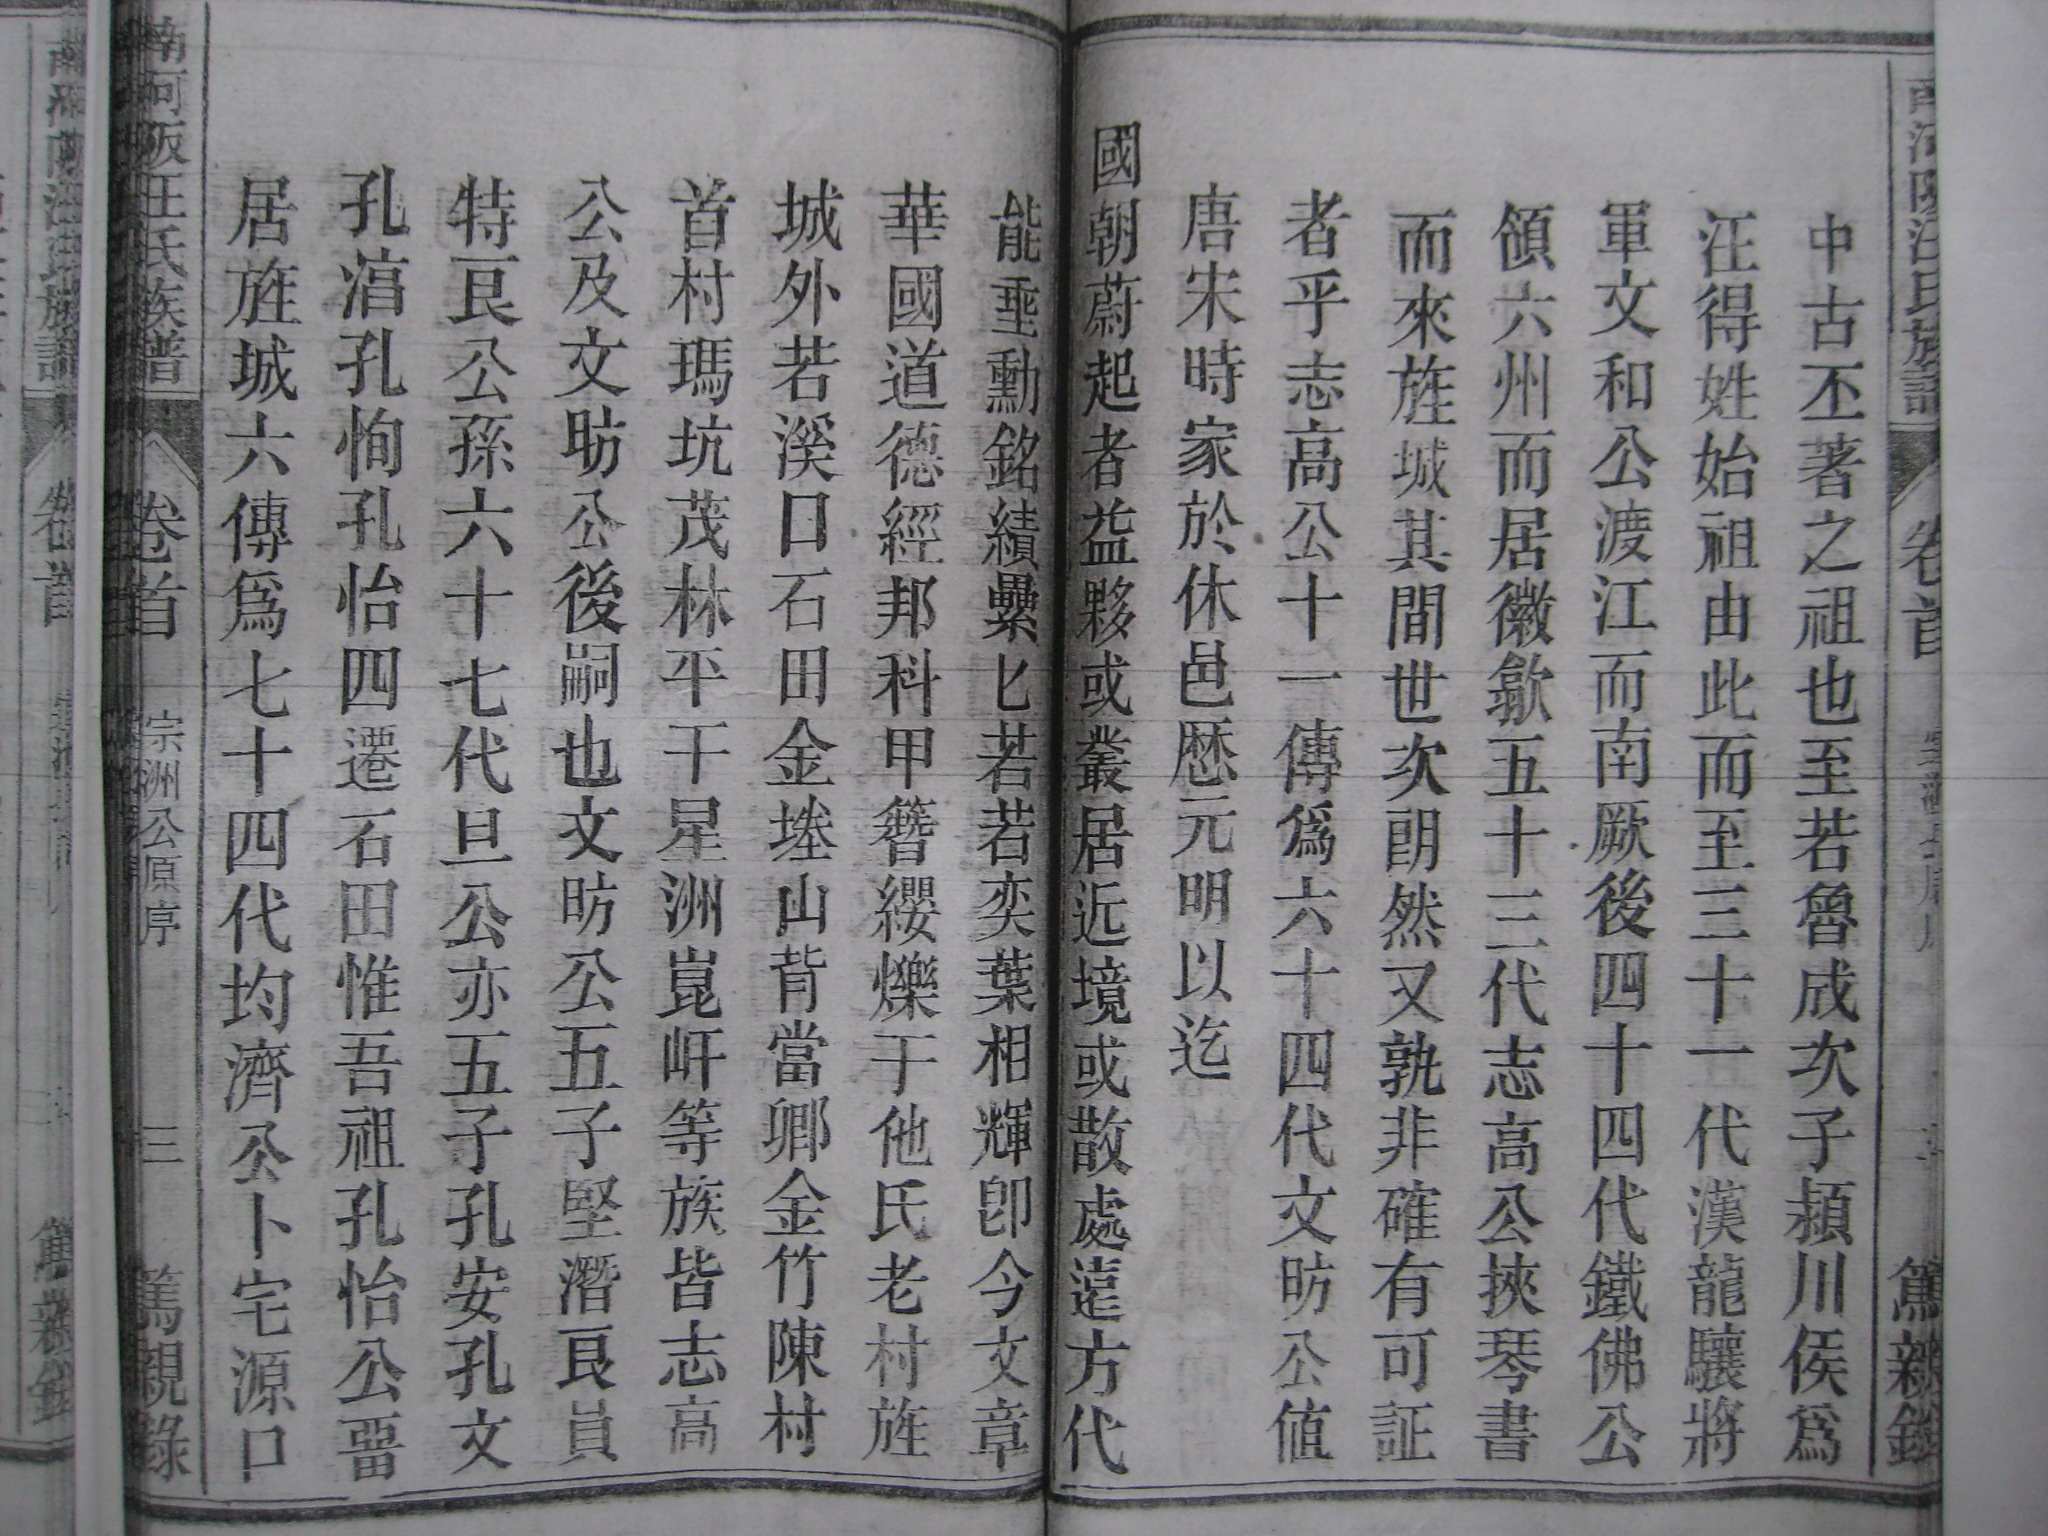 中古丕著之祖也至若魯成次子潁川侯爲
汪得姓始祖由此而至三十一代漢龍驤將
軍文和公渡江而南厥後四十四代鐵佛公
領六州而居徽歙五十三代志高公挾琴書
而來旌城其間世次朗然又孰非確有可証
者乎志高公十一傳爲六十四代文昉公值
唐宋時家於休邑歷元明以迄
國朝蔚起者益夥或叢居近境或散處遠方代
能垂勳銘績纍匕若若奕葉相輝卽今文章
華國道德經邦科甲簪纓爍于他氏老村旌
城外若溪口石田金墶山背當鄉金竹陳村
首村瑪坑茂林平干星洲崑岍等族皆志高
公及文昉公後嗣也文昉公五子堅潛艮員
特艮公孫六十七代旦公亦五子孔安孔文
孔㴙孔恂孔怡四遷石田惟吾祖孔怡公畱
居旌城六傳爲七十四代均濟公卜宅源口
南河阪汪氏族譜
卷首
宗洲公原序
三
篤親錄